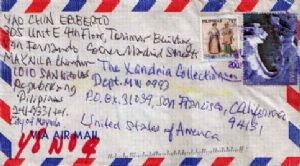 YAO CHIN EGBERTO
305 Unit E 4th Floor, Tenimar Building
San Fernando Corner Madrid Streets
MAYNILA
1010 SAN NICOLAS
Republikang
Pilipinas
241-9331
City of Manila
The Xandria Collection
Dept. MN 0993
P.O. Bx. 31039, San Francisco, California
94131
United States of America
VIA AIR MAIL